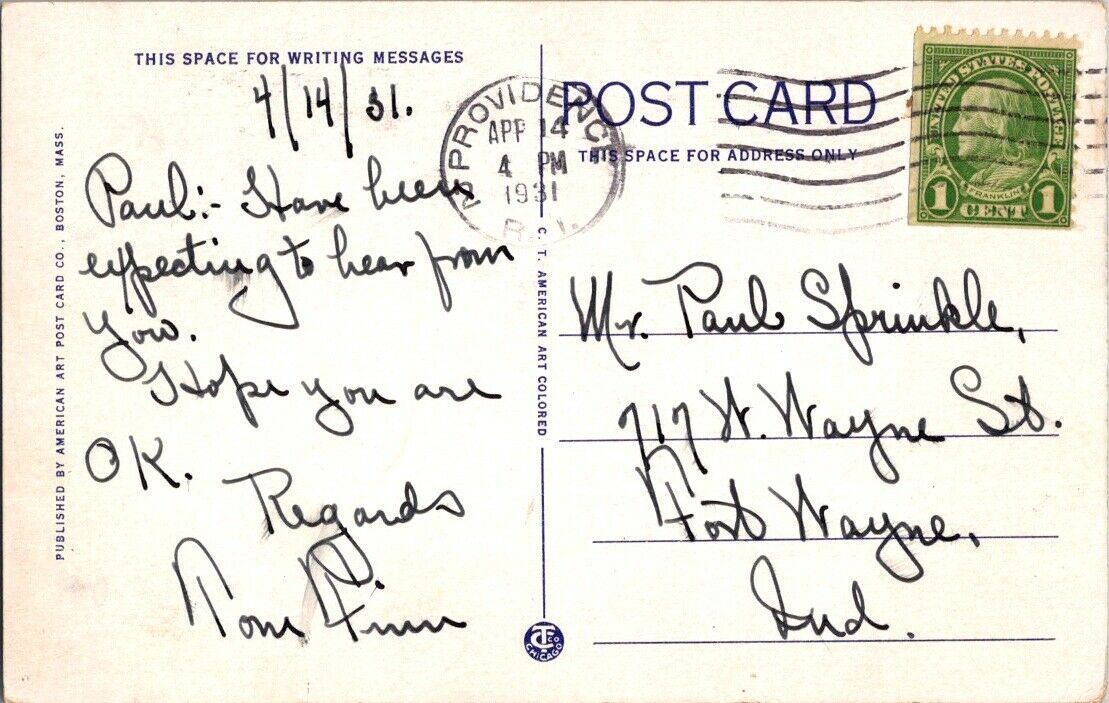 THIS SPACE FOR WRITING MESSAGES
4/14/31.
Paul:- Have been
expecting to hear from
you.
Hope you are
OK.
Regards
Tom Finn
PUBLISHED BY AMERICAN ART POST CARD CO., BOSTON, MASS.
C. T. AMERICAN ART COLORED
CHICAGO
PROVIDENCE
APR 14
4 PM
1931
R.I.
POST CARD
THIS SPACE FOR ADDRESS ONLY
UNITED STATES POSTAGE
FRANKLIN
1 CENT 1
Mr. Paul Sprinkle,
717 W. Wayne St.
Fort Wayne,
Ind.